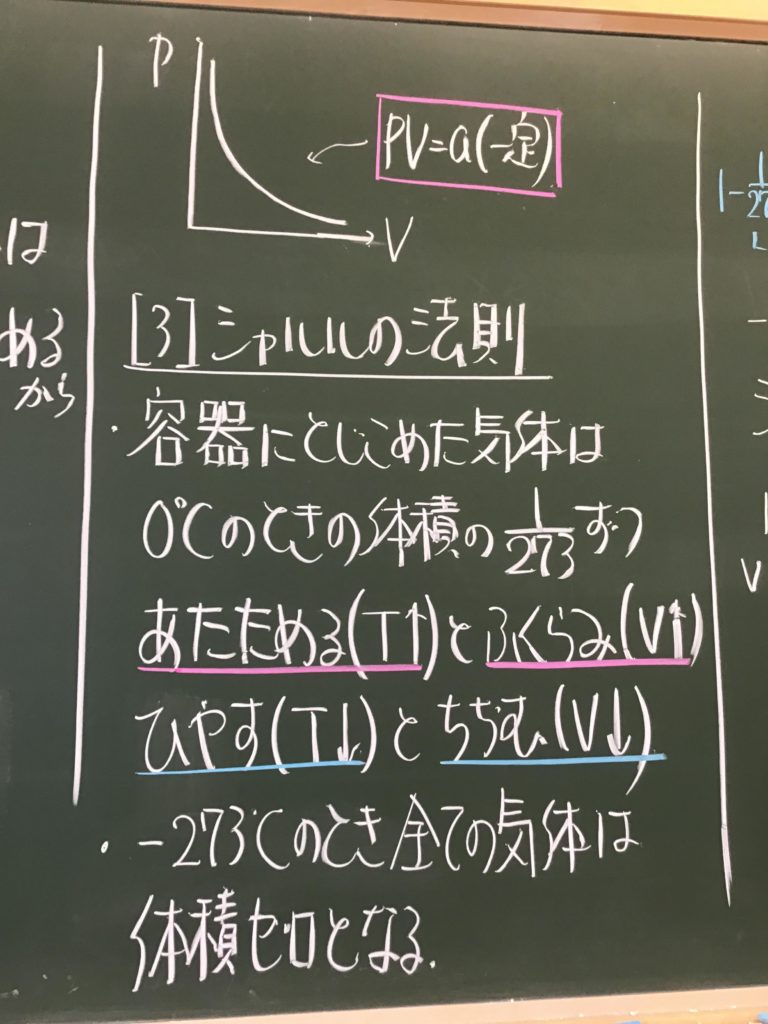 は
める
から
P
PV=a(一定)
V
[3]シャルルの法則
・容器にとじこめた気体は
0℃のときの体積の1/273ずつ
あたためる(T↑)とふくらみ(V↑)
ひやす(T↓)とちぢむ(V↓)
・-273℃のとき全ての気体は
体積ゼロとなる.
V